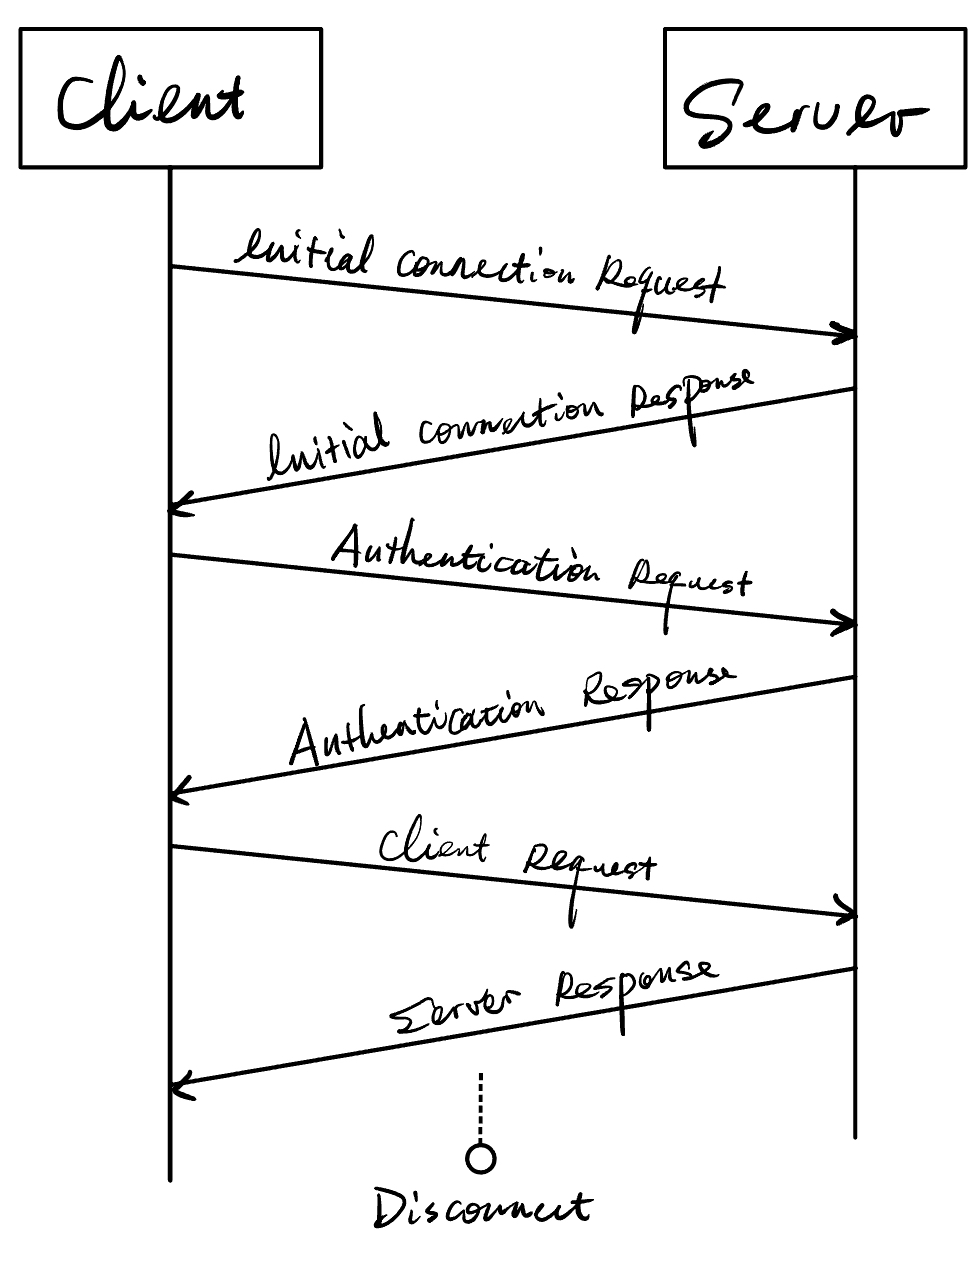 Client
Server
Initial connection Request
Initial connection Response
Authentication Request
Authentication Response
Client Request
Server Response
Disconnect